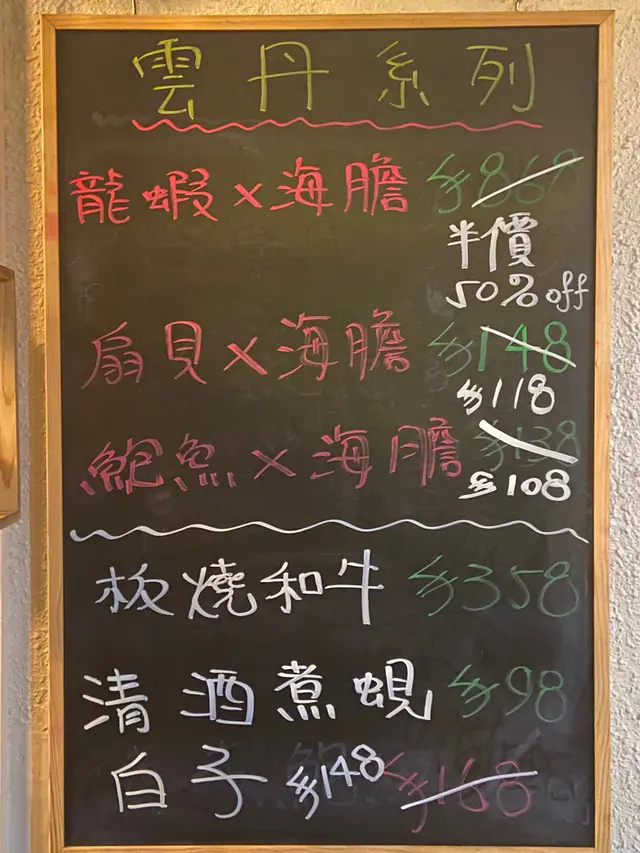 雲丹系列
龍蝦×海膽 $868
半價
50% off
扇貝×海膽 $148
$118
鮑魚×海膽 $138
$108
板燒和牛 $358
清酒煮蜆 $98
白子 $148 $168